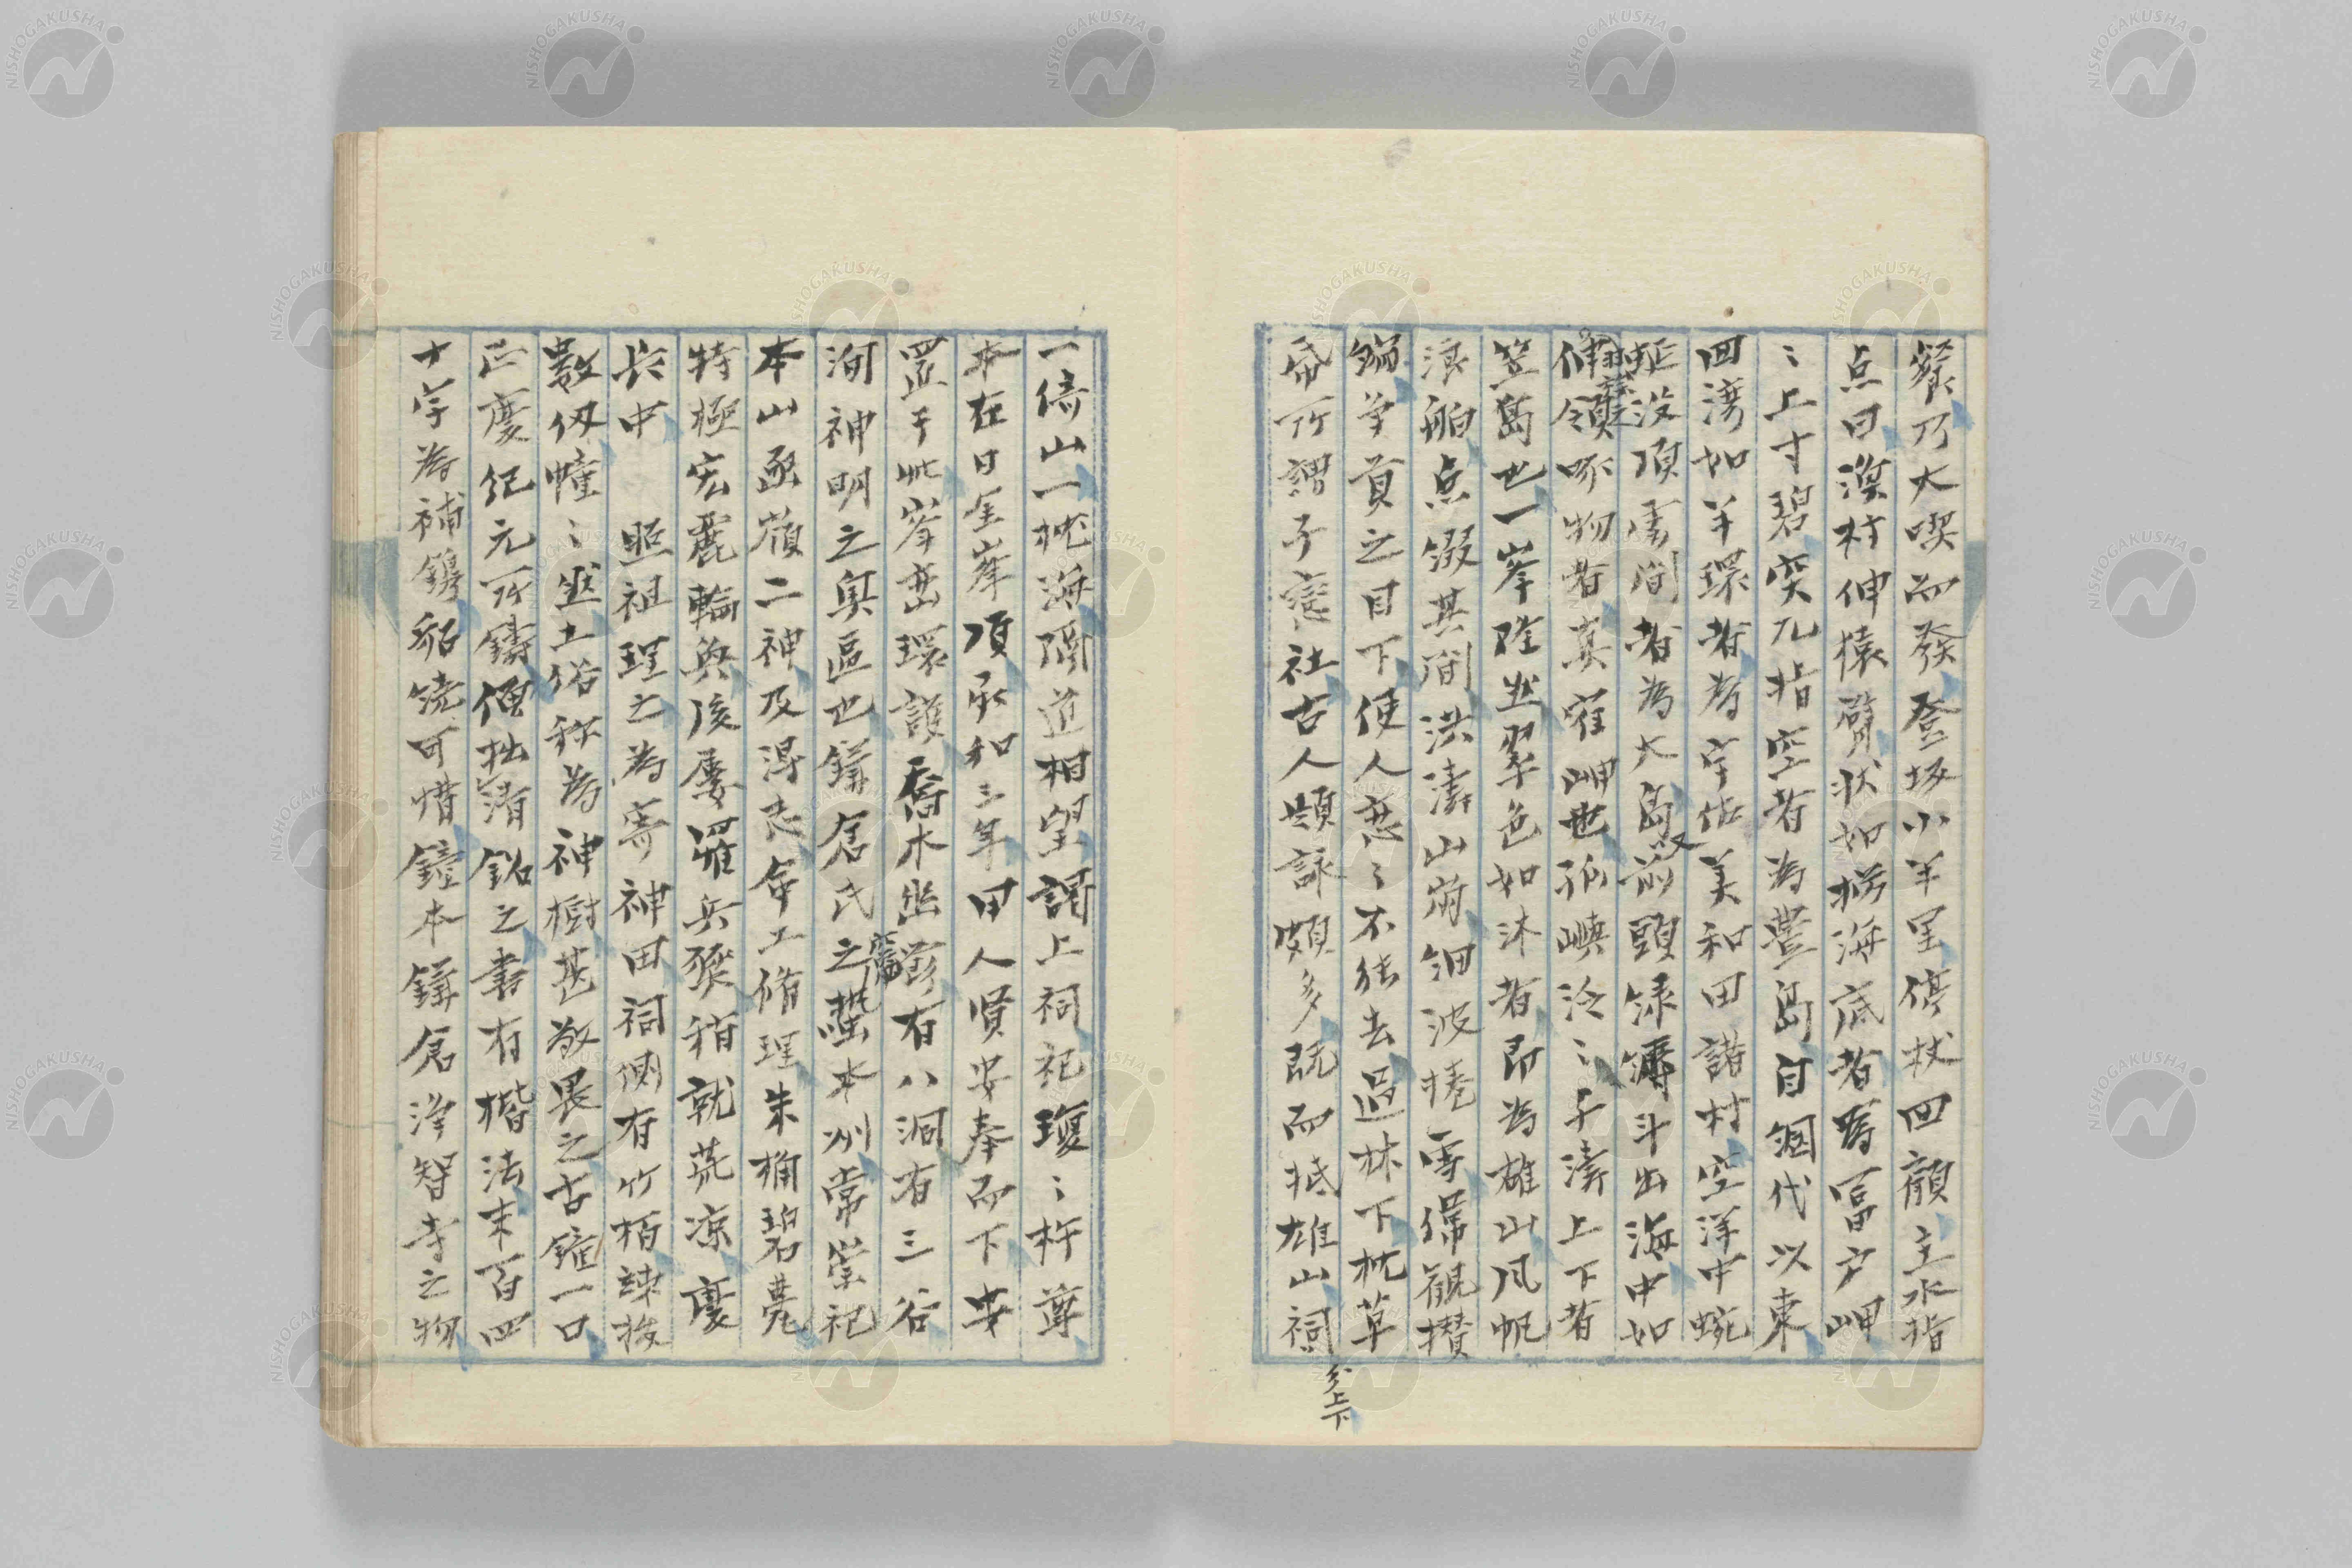 餐乃大喫而發登坂小半里停杖四顧主水指
点曰漁村伸猿臂状如榜海底者為冨戸岬
〻上寸碧突兀指空者為豊島自個代以東
四湾如半環者為宇佐美和田諸村空洋中蜿
蜒没頂雲間者為大島又前頭緑 斗出海中如
伸領啄物者真崔岬也孤嶼泠〻于濤上下者
笠島也一峯陡峚翠色如沐者即為雄山風帆
浪舶点綴其間洪濤山崩細波捲雪偉観攅
錦争貢之目下使人恋〻不能去過林下下枕草
帋所謂子恋社古人題詠頗多既而抵雄山祠
分上下
一倚山一枕海隔道相望謂上祠祀瓊〻杵尊
本在日金峯頂承和三年甲人賢安奉而下安
置于此峯巒環護喬木幽欝有八洞有三谷
洵神明之奥區也鎌倉氏之 本州常崇祀
本山函嶺二神及得志命工脩理朱桷碧甍
特極宏麗輪奐後屡罹兵燹稍就荒凉慶
長中 照祖理之為寄神田祠側有竹栢竦抜
數仭幢〻然土俗称為神樹甚敬畏之古鐘一口
正慶紀元所鑄俚拙 銘之書有楷法末百四
十字為補鐫 饒可惜鐘本鎌倉浄智寺之物